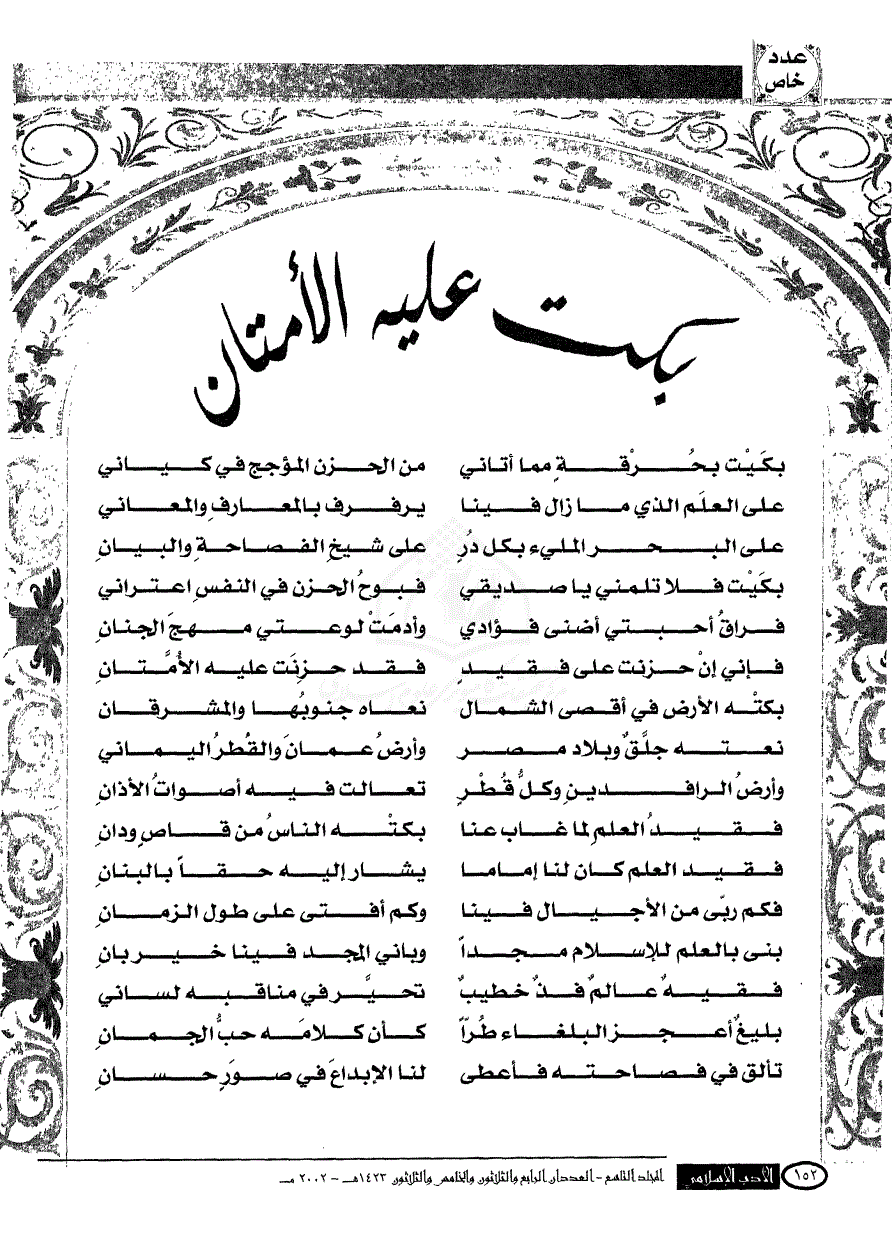 عدد
خاص
بكت عليه الأمتان
بكَيْت بحُرْقةٍ مما أتاني من الحزن المؤجج في كياني
على العلَم الذي ما زال فينا يرفرف بالمعارفِ والمعاني
على البحر المليء بكل دُرٍ على شيخِ الفصاحةِ والبيانِ
بكَيْت فلا تلمني يا صديقي فبوحُ الحزن في النفسِ اعتراني
فراقُ أحبتي أضنى فؤادي وأدمَتْ لوعتي مهجَ الجنانِ
فإني إنْ حزنت على فقيدٍ فقد حزنَت عليه الأُمَّتانِ
بكتْه الأرض في أقصى الشمال نعاه جنوبُها والمشرقان
نعته جلَّقٌ وبلاد مصر وأرضُ عمانَ والقُطرُ اليماني
وأرضُ الرافدينِ وكلُّ قُطْرٍ تعالت فيه أصواتُ الأذانِ
فقيدُ العلم لما غاب عنا بكتْه الناسُ من قاصٍ ودانِ
فقيد العلم كان لنا إماما يشار إليه حقاً بالبنانِ
فكم ربّى من الأجيال فينا وكم أفتى على طول الزمانِ
بنى بالعلم للإسلام مجداً وباني المجد فينا خير بانِ
فقيهٌ عالمٌ فذٌ خطيبٌ تحيَّر في مناقبه لساني
بليغٌ أعجز البلغاء طُرّاً كأن كلامَه حبُّ الجمانِ
تألق في فصاحته فأعطى لنا الإبداعَ في صورٍ حسانِ
١٥٢ الأدب الإسلامي المجلد التاسع - العددان الرابع والثلاثون والخامس والثلاثون ١٤٢٣هـ - ٢٠٠٢ مـ